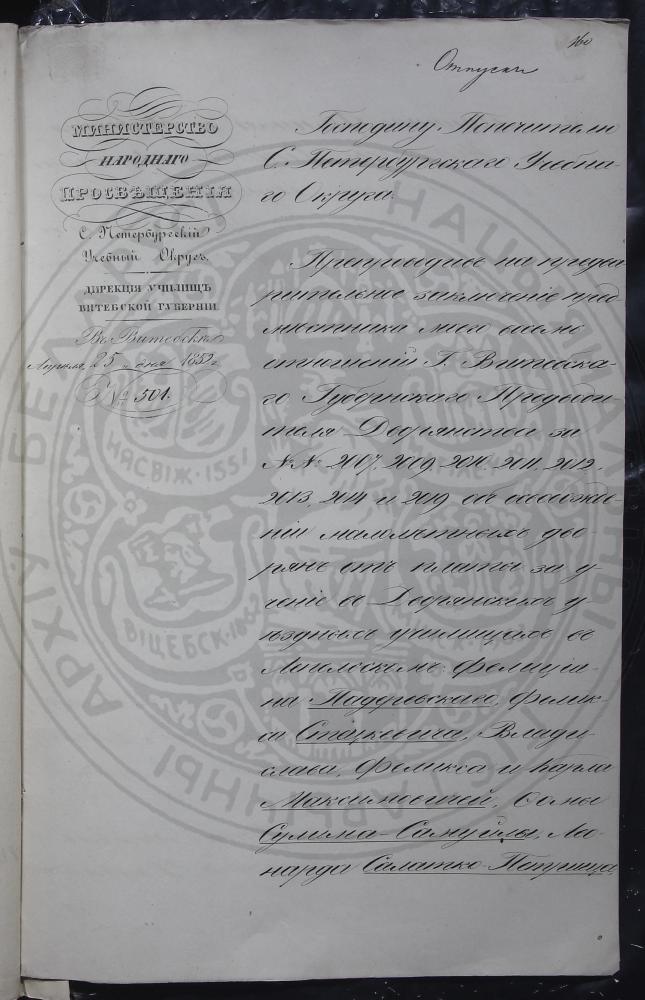 160
Отпускъ
МИНИСТЕРСТВО
НАРОДНАГО
ПРОСВѢЩЕНІЯ
С. Петербургскій
Учебный Округъ.
ДИРЕКЦІЯ УЧИЛИЩЪ
ВИТЕБСКОЙ ГУБЕРНІИ.
Въ Витебскѣ
Апрѣля 25 дня 1852 г.
№ 501.
Господину Попечителю
С. Петербургскаго Учебна-
го Округа.
Препроводивъ на предва
рительное заключеніе пред
мѣстника моего восемь
отношеній Г. Витебска-
го Губернскаго Предводи-
теля Дворянства за
№№ 2007, 2009, 2010, 2011, 2012,
2013, 2014 и 2019 объ освобожде-
ніи малолѣтныхъ дво-
рянъ отъ платы за у-
ченіе въ Дворянскихъ у
ѣздныхъ училищахъ въ
Фелиціа-
на Падеревскаго, Фелик-
са Стацкевича, Влади-
слава, Феликса и Карла
Максимовичей, Ѳомы
Сулима-Самуйлы, Лео-
нарда Салатко-Петрища,
АРХІЎ БЕЛАРУСІ
НАЦЫЯНАЛЬНЫ ГІСТАРЫЧНЫ
НЯСВІЖ·1551
ВІЦЕБСК·1862